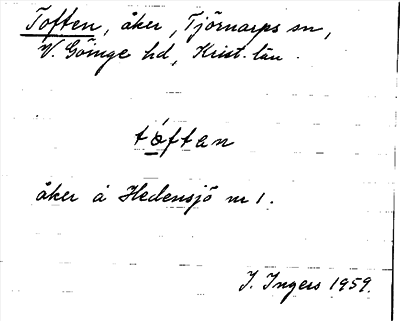 Toften, åker, Tjörnarps sn,
V. Göinge hd, Krist. län.
tóftan
åker å Hedensjö nr 1.
I. Ingers 1959.